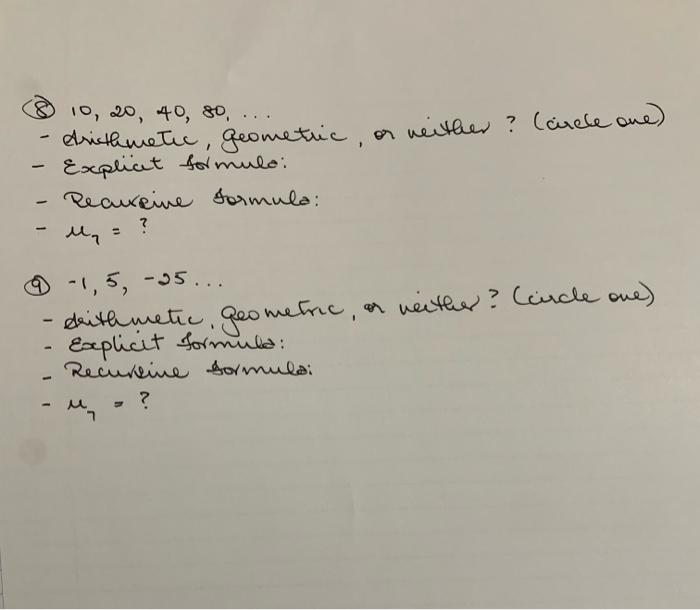 ⑧ 10, 20, 40, 80, ...
- Arithmetic, geometric, or neither ? (circle one)
- Explicit formula:
- Recursive formula:
- u₇ = ?
⑨ -1, 5, -25 ...
- Arithmetic, geometric, or neither ? (circle one)
- Explicit formula:
- Recursive formula:
- u₇ = ?